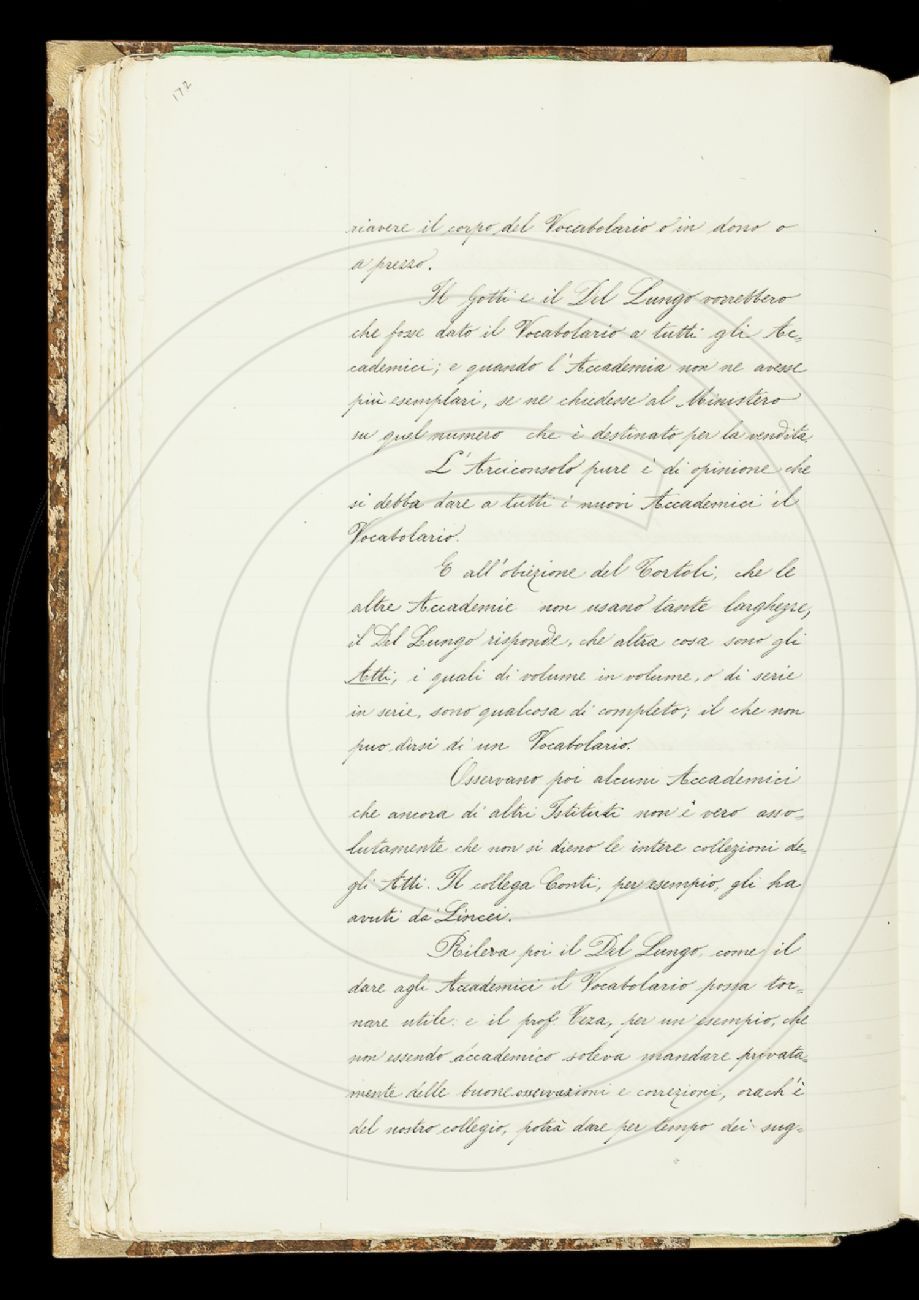 172
riavere il corpo del Vocabolario o in dono o
a prezzo.
Il Gotti e il Del Lungo vorrebbero
che fosse dato il Vocabolario a tutti gli Ac=
cademici; e quando l'Accademia non ne avesse
più esemplari, se ne chiedesse al Ministero
su quel numero che è destinato per la vendita.
L'Arciconsolo pure è di opinione che
si debba dare a tutti i nuovi Accademici il
Vocabolario.
E all'obiezione del Tortoli, che le
altre Accademie non usano tante larghezze,
il Del Lungo risponde, che altra cosa sono gli
Atti, i quali di volume in volume, o di serie
in serie, sono qualcosa di completo; il che non
può dirsi di un Vocabolario.
Osservano poi alcuni Accademici
che ancora di altri Istituti non è vero asso=
lutamente che non si dieno le intere collezioni de=
gli Atti. Il collega Conti, per esempio, gli ha
avuti da' Lincei.
Rileva poi il Del Lungo, come il
dare agli Accademici il Vocabolario possa tor=
nare utile: e il prof. Teza, per un esempio, che
non essendo accademico soleva mandare privata=
mente delle buone osservazioni e correzioni, ora ch'è
del nostro collegio, potrà dare per tempo dei sug=